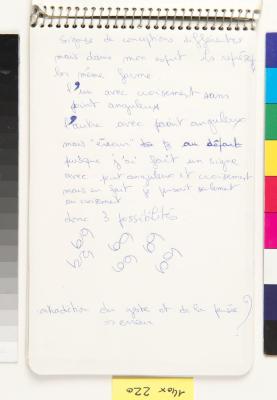 signes de conceptions différentes
mais dans mon esprit les
la même forme
l'un avec croisement sans
point anguleux
l'autre avec point anguleux
mais "erreur" au départ
puisque j'ai fait un signe
avec point anguleux et croisement
mais en fait je pensait seulement
au croisement
donc 3 possibilités
contradiction du geste et de la pensée ?
=> erreur
140x 220